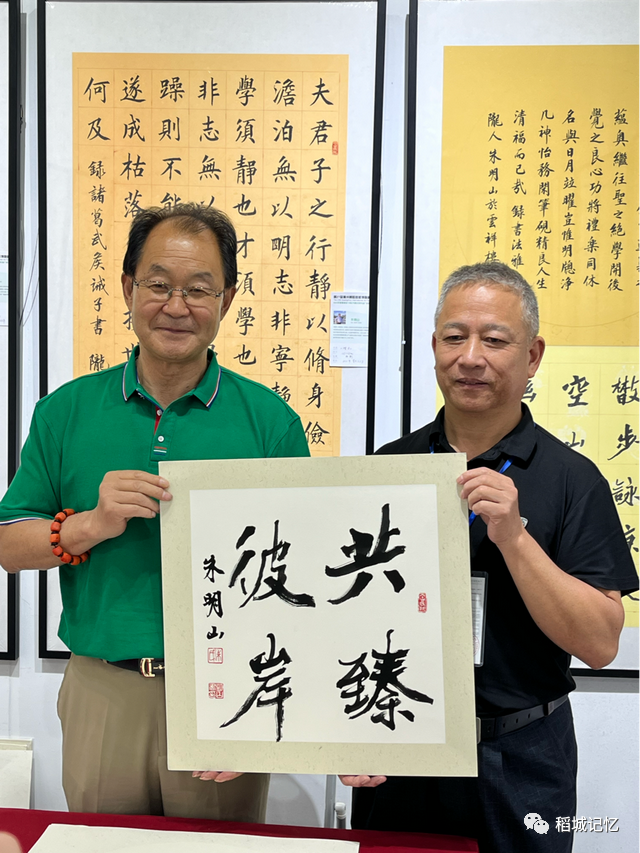 夫君子之行靜以脩身儉
澹泊無以明志非寧靜
學須靜也才須學也
非志無以
躁則不能
遂成枯落
接世
何及 錄諸葛武矦誡子書 隴
奧繼往聖之絕學開後
覺之良心功將禮樂同休
名與日月竝曜豈惟明牕淨
几神怡務閑筆硯精良人生
清福而已哉 錄書法雅
隴人朱明山於雲祥樓
散步詠涼
空山
共臻
彼岸
朱明山
稻城记忆